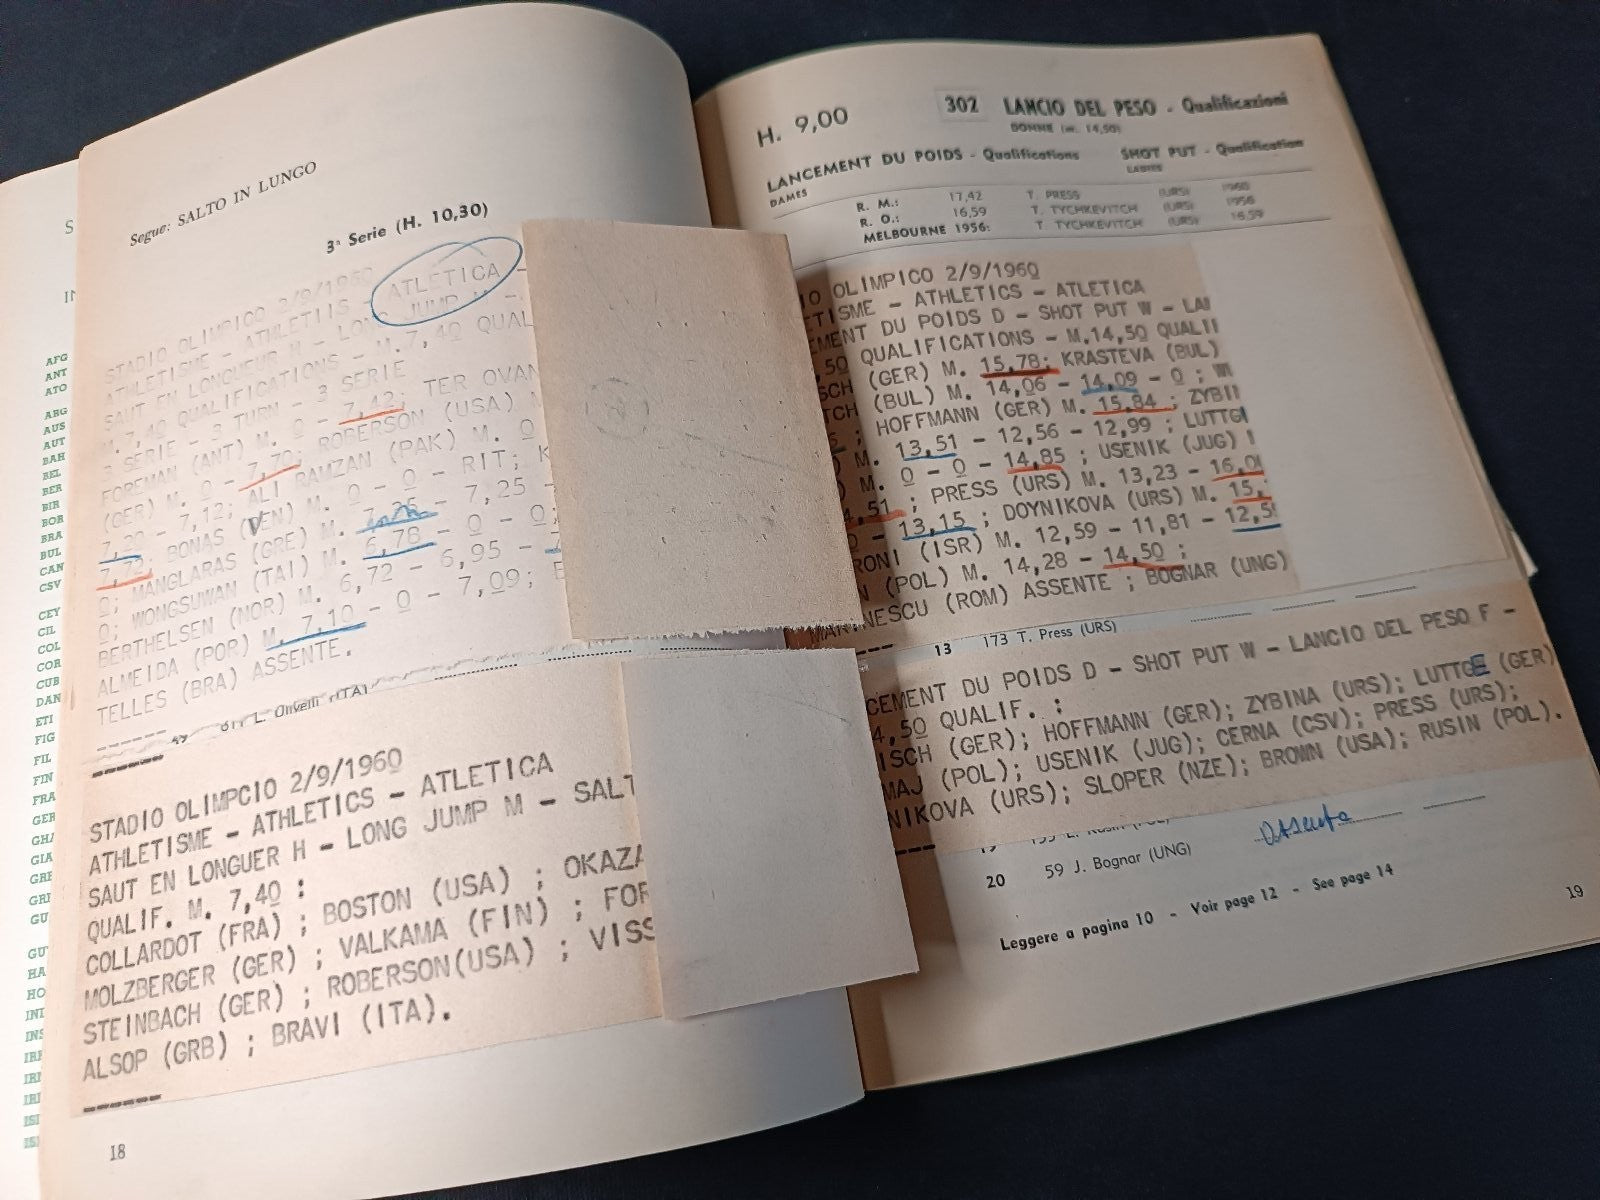 S
IN
AFG
ANT
ATO
ARG
AUS
AUT
BAH
BEL
BER
BIR
BOR
BRA
BUL
CAN
CSV
CEY
CIL
COL
COR
CUB
DAN
ETI
FIG
FIL
FIN
FRA
GER
GHA
GIA
GRE
GRE
GU
GU
HA
HO
INI
INS
IRI
IRI
IRI
ISI
ISI
Segue: SALTO IN LUNGO
3ª Serie (H. 10,30)
STADIO OLIMPICO 2/9/1960
ATHLETISME - ATHLETIIS - ATLETICA -
SAUT EN LONGUEUR H - LONG JUMP M -
M.7,40 QUALIFICATIONS - M.7,40 QUAL
3 SERIE - 3 TURN - 3 SERIE
FOREMAN (ANT) M. 0 - 7,42; TER OVAN
(GER) M. 0 - 7,70; ROBERSON (USA)
7,20 - 7,12; ALI RAMZAN (PAK) M. 0
7,72; BONAS (VEN) M. 0 - 0 - RIT; K
0; MANGLARAS (GRE) M. 7,25 - 7,25 -
0; WONGSUWAN (TAI) M. 6,78 - 0 - 0;
BERTHELSEN (NOR) M. 6,72 - 6,95 -
ALMEIDA (POR) M. 7,10 - 0 - 7,09; E
TELLES (BRA) ASSENTE.
L. Olivelli (ITA)
STADIO OLIMPCIO 2/9/1960
ATHLETISME - ATHLETICS - ATLETICA
SAUT EN LONGUER H - LONG JUMP M - SALT
QUALIF. M. 7,40 :
COLLARDOT (FRA) ; BOSTON (USA) ; OKAZA
MOLZBERGER (GER) ; VALKAMA (FIN) ; FOR
STEINBACH (GER) ; ROBERSON(USA) ; VISS
ALSOP (GRB) ; BRAVI (ITA).
18
H. 9,00
302 LANCIO DEL PESO - Qualificazioni
DONNE (m. 14,50)
LANCEMENT DU POIDS - Qualifications SHOT PUT - Qualification
DAMES LADIES
R. M.: 17,42 T. PRESS (URS) 1960
R. O.: 16,59 T. TYCHKEVITCH (URS) 1956
MELBOURNE 1956: T. TYCHKEVITCH (URS) 16,59
IO OLIMPICO 2/9/1960
ETISME - ATHLETICS - ATLETICA
EMENT DU POIDS D - SHOT PUT W - LAN
,50 QUALIFICATIONS - M.14,50 QUALI
SCH (GER) M. 15,78; KRASTEVA (BUL)
(BUL) M. 14,06 - 14,09 - 0 ; W
TCH HOFFMANN (GER) M. 15,84 ; ZYBI
; M. 13,51 - 12,56 - 12,99 ; LUTTG
) M. 0 - 0 - 14,85 ; USENIK (JUG)
4,51 ; PRESS (URS) M. 13,23 - 16,0
0 - 13,15 ; DOYNIKOVA (URS) M. 15,
RONI (ISR) M. 12,59 - 11,81 - 12,5
N (POL) M. 14,28 - 14,50 ;
MARINESCU (ROM) ASSENTE ; BOGNAR (UNG)
13 173 T. Press (URS)
CEMENT DU POIDS D - SHOT PUT W - LANCIO DEL PESO F -
4,50 QUALIF. :
ISCH (GER); HOFFMANN (GER); ZYBINA (URS); LUTTGE (GER)
MAJ (POL); USENIK (JUG); CERNA (CSV); PRESS (URS);
NIKOVA (URS); SLOPER (NZE); BROWN (USA); RUSIN (POL).
20 59 J. Bognar (UNG) assente
Leggere a pagina 10 - Voir page 12 - See page 14
19